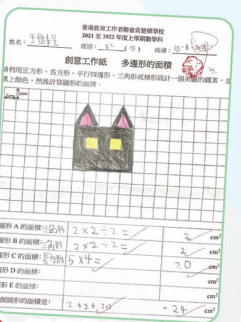 香港教育工作者聯會黃楚標學校
2021 至 2022 年度上學期數學科
姓名：
班別：
成績：
創意工作紙 多邊形的面積
請利用正方形、長方形、平行四邊形、三角形或梯形設計一個美麗的圖案，並
填上顏色，然後計算圖形的面積。
圖形 A 的面積：三角形 2×2÷2= 2 cm²
圖形 B 的面積：三角形 2×2÷2= 2 cm²
圖形 C 的面積：長方形 5×4= 20 cm²
圖形 D 的面積： cm²
圖形 E 的面積： cm²
整個圖形的面積是： 2+2+20 =24 cm²